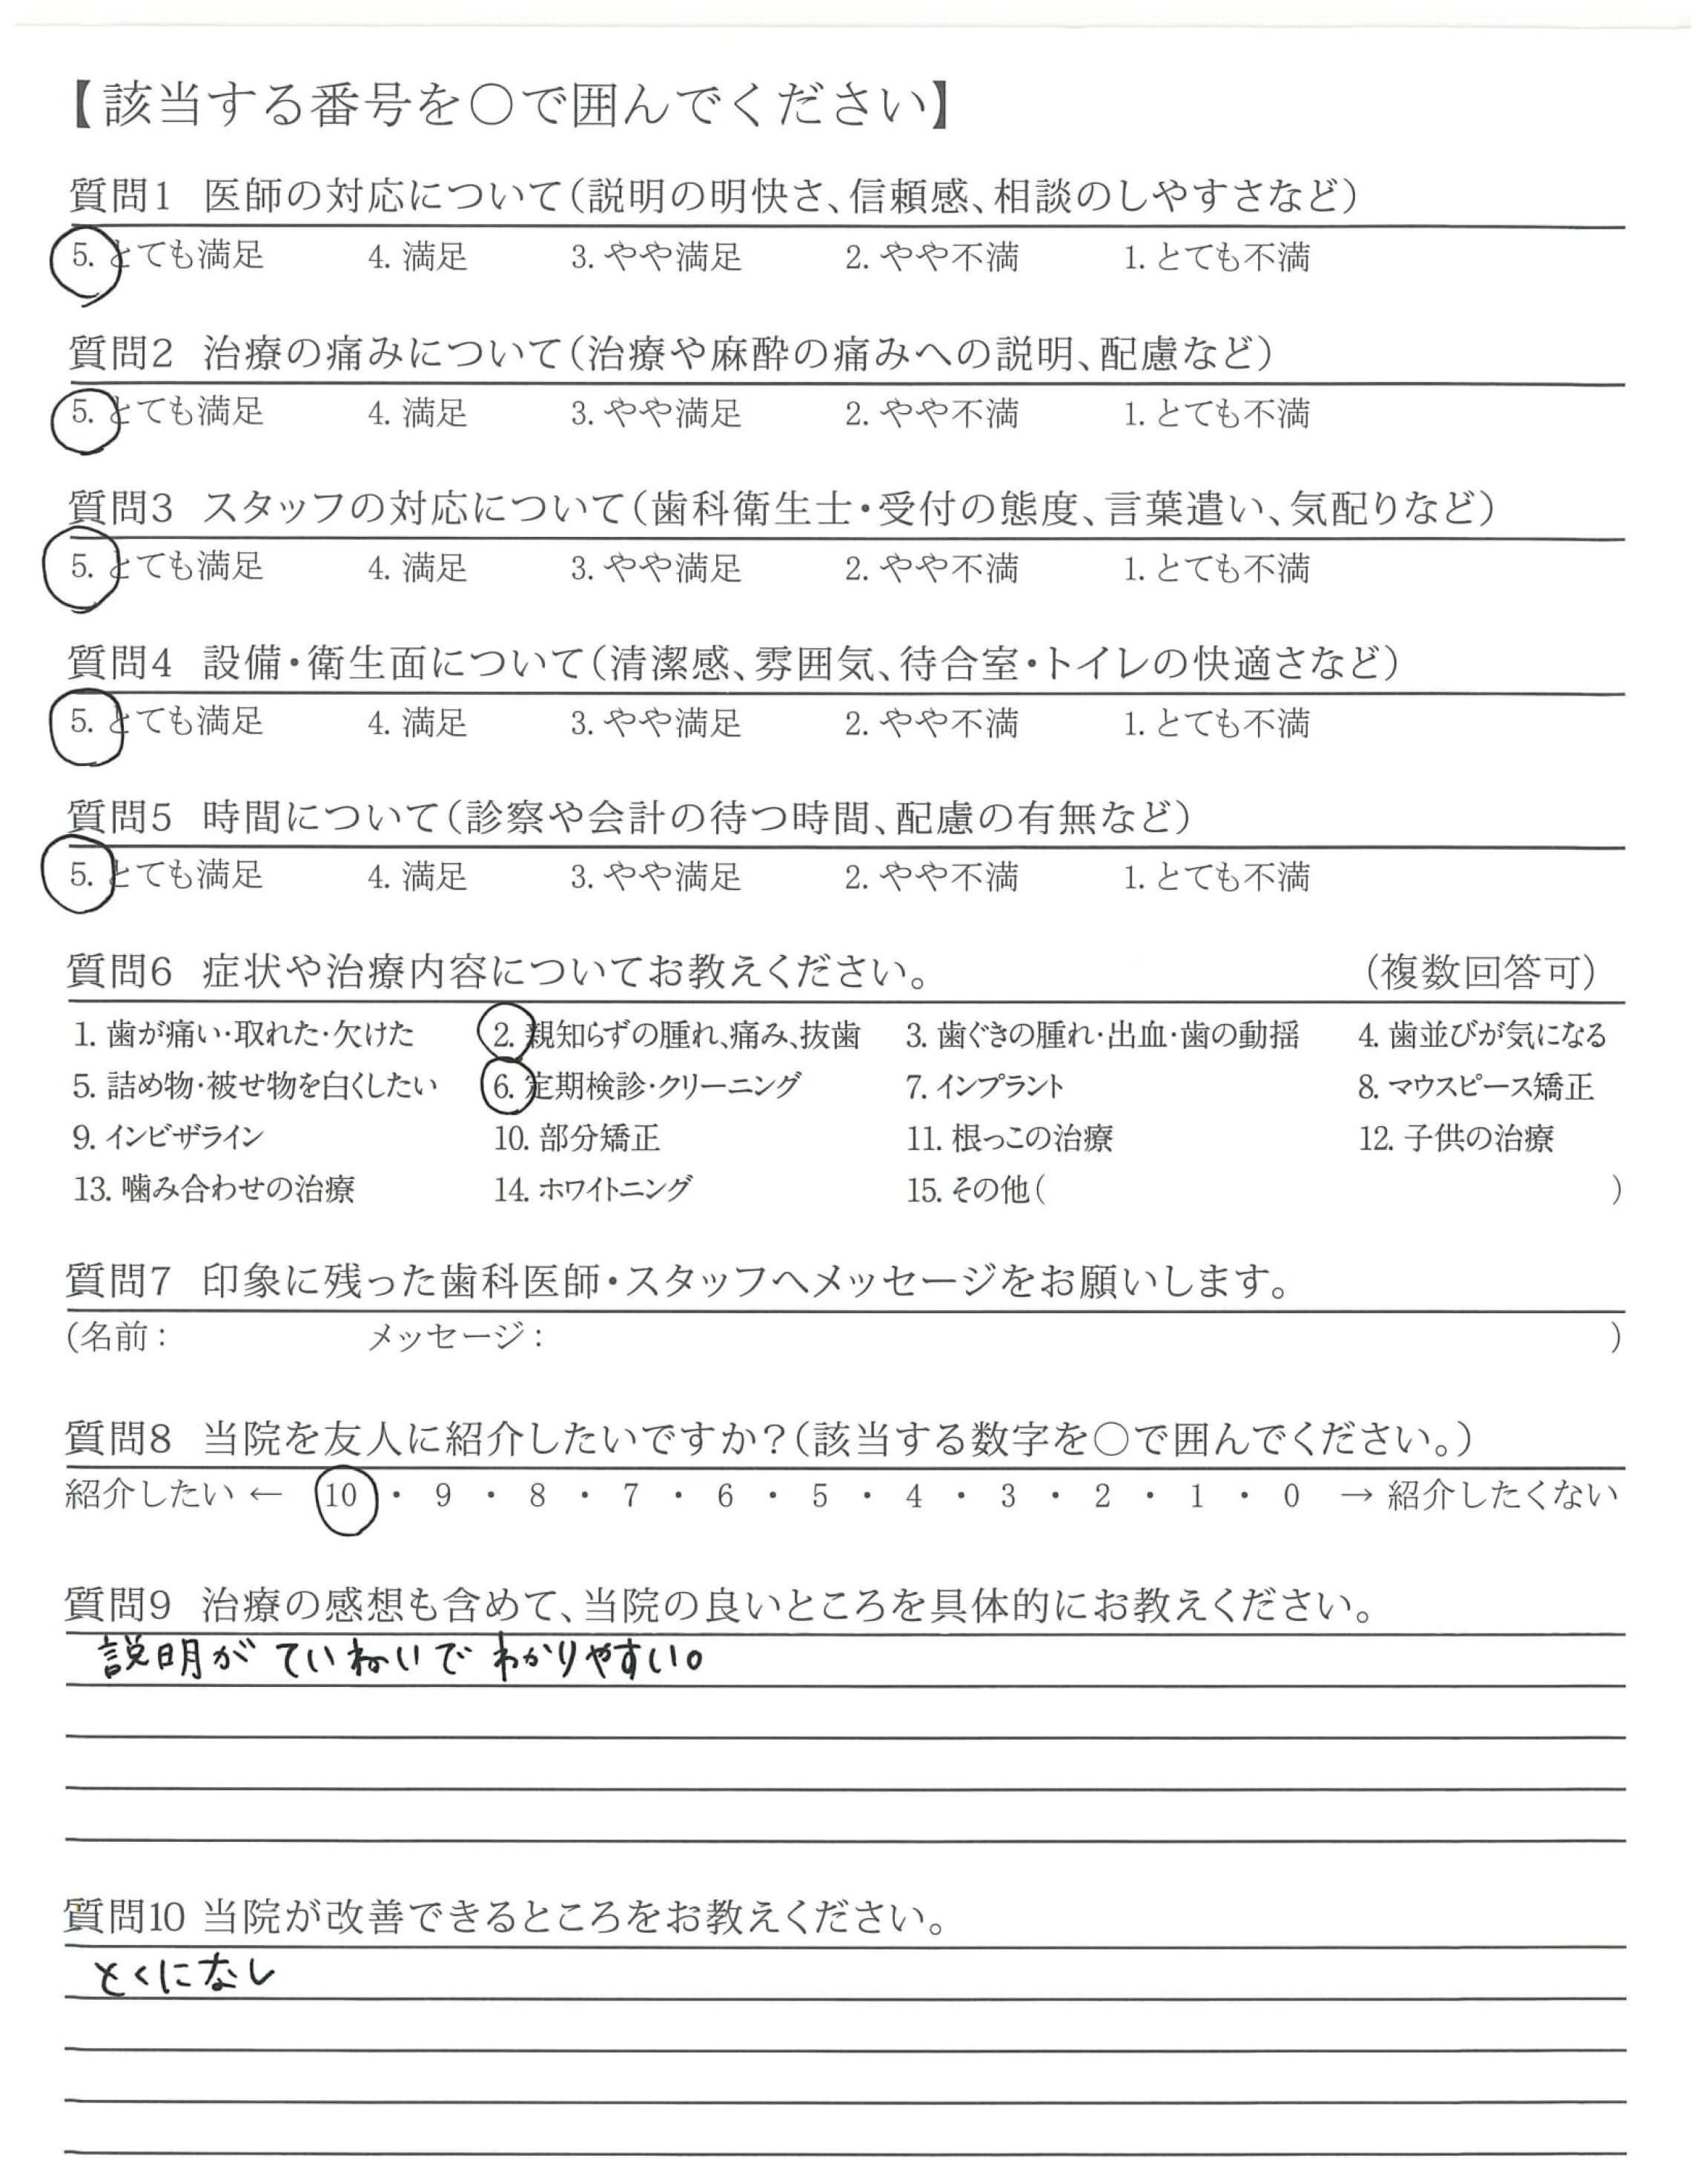 【該当する番号を○で囲んでください】
質問1 医師の対応について（説明の明快さ、信頼感、相談のしやすさなど）
5. とても満足 4. 満足 3. やや満足 2. やや不満 1. とても不満
質問2 治療の痛みについて（治療や麻酔の痛みへの説明、配慮など）
5. とても満足 4. 満足 3. やや満足 2. やや不満 1. とても不満
質問3 スタッフの対応について（歯科衛生士・受付の態度、言葉遣い、気配りなど）
5. とても満足 4. 満足 3. やや満足 2. やや不満 1. とても不満
質問4 設備・衛生面について（清潔感、雰囲気、待合室・トイレの快適さなど）
5. とても満足 4. 満足 3. やや満足 2. やや不満 1. とても不満
質問5 時間について（診察や会計の待つ時間、配慮の有無など）
5. とても満足 4. 満足 3. やや満足 2. やや不満 1. とても不満
質問6 症状や治療内容についてお教えください。 （複数回答可）
1. 歯が痛い・取れた・欠けた 2. 親知らずの腫れ、痛み、抜歯 3. 歯ぐきの腫れ・出血・歯の動揺 4. 歯並びが気になる
5. 詰め物・被せ物を白くしたい 6. 定期検診・クリーニング 7. インプラント 8. マウスピース矯正
9. インビザライン 10. 部分矯正 11. 根っこの治療 12. 子供の治療
13. 噛み合わせの治療 14. ホワイトニング 15. その他（ ）
質問7 印象に残った歯科医師・スタッフへメッセージをお願いします。
（名前： メッセージ： ）
質問8 当院を友人に紹介したいですか？（該当する数字を○で囲んでください。）
紹介したい ← 10 ・ 9 ・ 8 ・ 7 ・ 6 ・ 5 ・ 4 ・ 3 ・ 2 ・ 1 ・ 0 → 紹介したくない
質問9 治療の感想も含めて、当院の良いところを具体的にお教えください。
説明がていねいでわかりやすい。
質問10 当院が改善できるところをお教えください。
とくになし